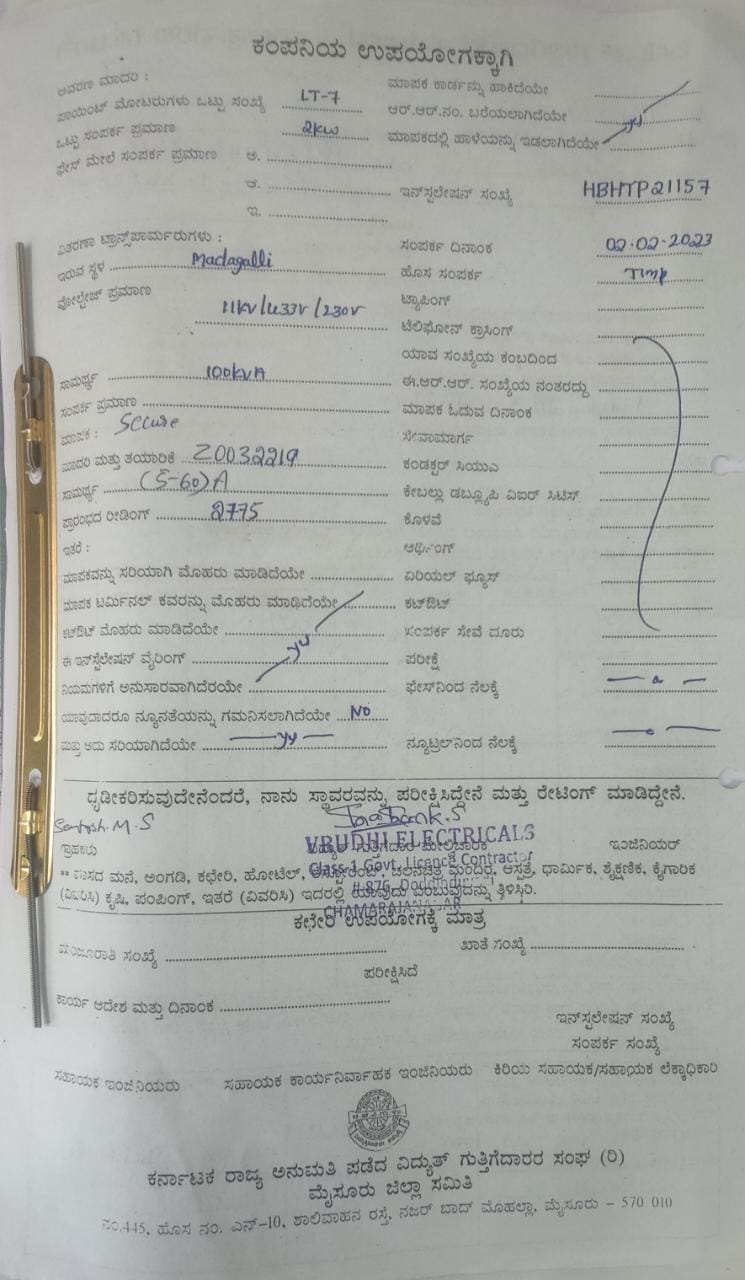 ಕಂಪನಿಯ ಉಪಯೋಗಕ್ಕಾಗಿ
ಆವರಣ ಮಾದರಿ :
ಮಾಪಕ ಕಾರ್ಡನ್ನು ಹಾಕಿದೆಯೇ
ಪಾಯಿಂಟ್ ಮೋಟರುಗಳು ಒಟ್ಟು ಸಂಖ್ಯೆ LT-7
ಆರ್.ಆರ್.ನಂ. ಬರೆಯಲಾಗಿದೆಯೇ
ಒಟ್ಟು ಸಂಪರ್ಕ ಪ್ರಮಾಣ 2kw
ಮಾಪಕದಲ್ಲಿ ಹಾಳೆಯನ್ನು ಇಡಲಾಗಿದೆಯೇ
ಫೇಸ್ ಮೇಲೆ ಸಂಪರ್ಕ ಪ್ರಮಾಣ ಅ.
ಆ.
ಇನ್‌ಸ್ಟಲೇಷನ್ ಸಂಖ್ಯೆ HBHTP21157
ಇ.
ವಿತರಣಾ ಟ್ರಾನ್ಸ್‌ಪಾರ್ಮರುಗಳು :
ಸಂಪರ್ಕ ದಿನಾಂಕ 02.02.2023
ಇರುವ ಸ್ಥಳ Madagalli
ಹೊಸ ಸಂಪರ್ಕ Timp
ವೋಲ್ಟೇಜ್ ಪ್ರಮಾಣ 11kv/433v/230v
ಟ್ಯಾಪಿಂಗ್
ಟೆಲಿಫೋನ್ ಕ್ರಾಸಿಂಗ್
ಯಾವ ಸಂಖ್ಯೆಯ ಕಂಬದಿಂದ
ಸಾಮರ್ಥ್ಯ 100kvA
ಈ.ಆರ್.ಆರ್. ಸಂಖ್ಯೆಯ ನಂತರದ್ದು
ಸಂಪರ್ಕ ಪ್ರಮಾಣ
ಮಾಪಕ ಓದುವ ದಿನಾಂಕ
ಮಾಪಕ : Secure
ಸೇವಾಮಾರ್ಗ
ಮಾದರಿ ಮತ್ತು ತಯಾರಿಕೆ Z0032219
ಕಂಡಕ್ಟರ್ ಸಿಯುಎ
ಸಾಮರ್ಥ್ಯ (5-60)A
ಕೇಬಲ್ಲು ಡಬ್ಲ್ಯೂಪಿ ವಿಐರ್ ಸಿಟಿಸ್
ಪ್ರಾರಂಭದ ರೀಡಿಂಗ್ 2775
ಕೊಳವೆ
ಇತರೆ :
ಅರ್ಥಿಂಗ್
ಮಾಪಕವನ್ನು ಸರಿಯಾಗಿ ಮೊಹರು ಮಾಡಿದೆಯೇ
ಏರಿಯಲ್ ಫ್ಯೂಸ್
ಮಾಪಕ ಟರ್ಮಿನಲ್ ಕವರನ್ನು ಮೊಹರು ಮಾಢಿದೆಯೇ
ಕಟ್‌ಔಟ್
ಕಟ್‌ಔಟ್ ಮೊಹರು ಮಾಡಿದೆಯೇ
ಸಂಪರ್ಕ ಸೇವೆ ದೂರು
ಈ ಇನ್‌ಸ್ಟಲೇಷನ್ ವೈರಿಂಗ್
ಪರೀಕ್ಷೆ
ನಿಯಮಗಳಿಗೆ ಅನುಸಾರವಾಗಿದೆರಯೇ
ಫೇಸ್‌ನಿಂದ ನೆಲಕ್ಕೆ
ಯಾವುದಾದರೂ ನ್ಯೂನತೆಯನ್ನು ಗಮನಿಸಲಾಗಿದೆಯೇ NO
ಮತ್ತು ಅದು ಸರಿಯಾಗಿದೆಯೇ
ನ್ಯೂಟ್ರಲ್‌ನಿಂದ ನೆಲಕ್ಕೆ
ದೃಡೀಕರಿಸುವುದೇನೆಂದರೆ, ನಾನು ಸ್ಥಾವರವನ್ನು ಪರೀಕ್ಷಿಸಿದ್ದೇನೆ ಮತ್ತು ರೇಟಿಂಗ್ ಮಾಡಿದ್ದೇನೆ.
Santosh.M.S
ಗ್ರಾಹಕರು
ಇಂಜಿನಿಯರ್
VRUDHI ELECTRICALS
Class-1 Govt. Licence Contractor
ಮನೆ, ಅಂಗಡಿ, ಕಛೇರಿ, ಹೋಟೆಲ್, ಮಂದಿರ, ಆಸ್ಪತ್ರೆ, ಧಾರ್ಮಿಕ, ಶೈಕ್ಷಣಿಕ, ಕೈಗಾರಿಕ
(ವಿವರಿಸಿ) ಕೃಷಿ, ಪಂಪಿಂಗ್, ಇತರೆ (ವಿವರಿಸಿ) ಇದರಲ್ಲಿ ಯಾವುದು ಎಂಬುವುದನ್ನು ತ್ತಿಳಿಸಿರಿ.
CHAMARAJANAGAR
ಕಛೇರಿ ಉಪಯೋಗಕ್ಕೆ ಮಾತ್ರ
ಮಂಜೂರಾತಿ ಸಂಖ್ಯೆ
ಖಾತೆ ಸಂಖ್ಯೆ
ಪರೀಕ್ಷಿಸಿದೆ
ಕಾರ್ಯ ಆದೇಶ ಮತ್ತು ದಿನಾಂಕ
ಇನ್‌ಸ್ಟಲೇಷನ್ ಸಂಖ್ಯೆ
ಸಂಪರ್ಕ ಸಂಖ್ಯೆ
ಸಹಾಯಕ ಇಂಜಿನಿಯರು ಸಹಾಯಕ ಕಾರ್ಯನಿರ್ವಾಹಕ ಇಂಜಿನಿಯರು ಕಿರಿಯ ಸಹಾಯಕ/ಸಹಾಯಕ ಲೆಕ್ಕಾಧಿಕಾರಿ
ಕರ್ನಾಟಕ ರಾಜ್ಯ ಅನುಮತಿ ಪಡೆದ ವಿದ್ಯುತ್ ಗುತ್ತಿಗೆದಾರರ ಸಂಘ (ರಿ)
ಮೈಸೂರು ಜಿಲ್ಲಾ ಸಮಿತಿ
ನಂ.445, ಹೊಸ ನಂ. ಎನ್-10, ಶಾಲಿವಾಹನ ರಸ್ತೆ, ನಜರ್ ಬಾದ್ ಮೊಹಲ್ಲಾ, ಮೈಸೂರು - 570 010